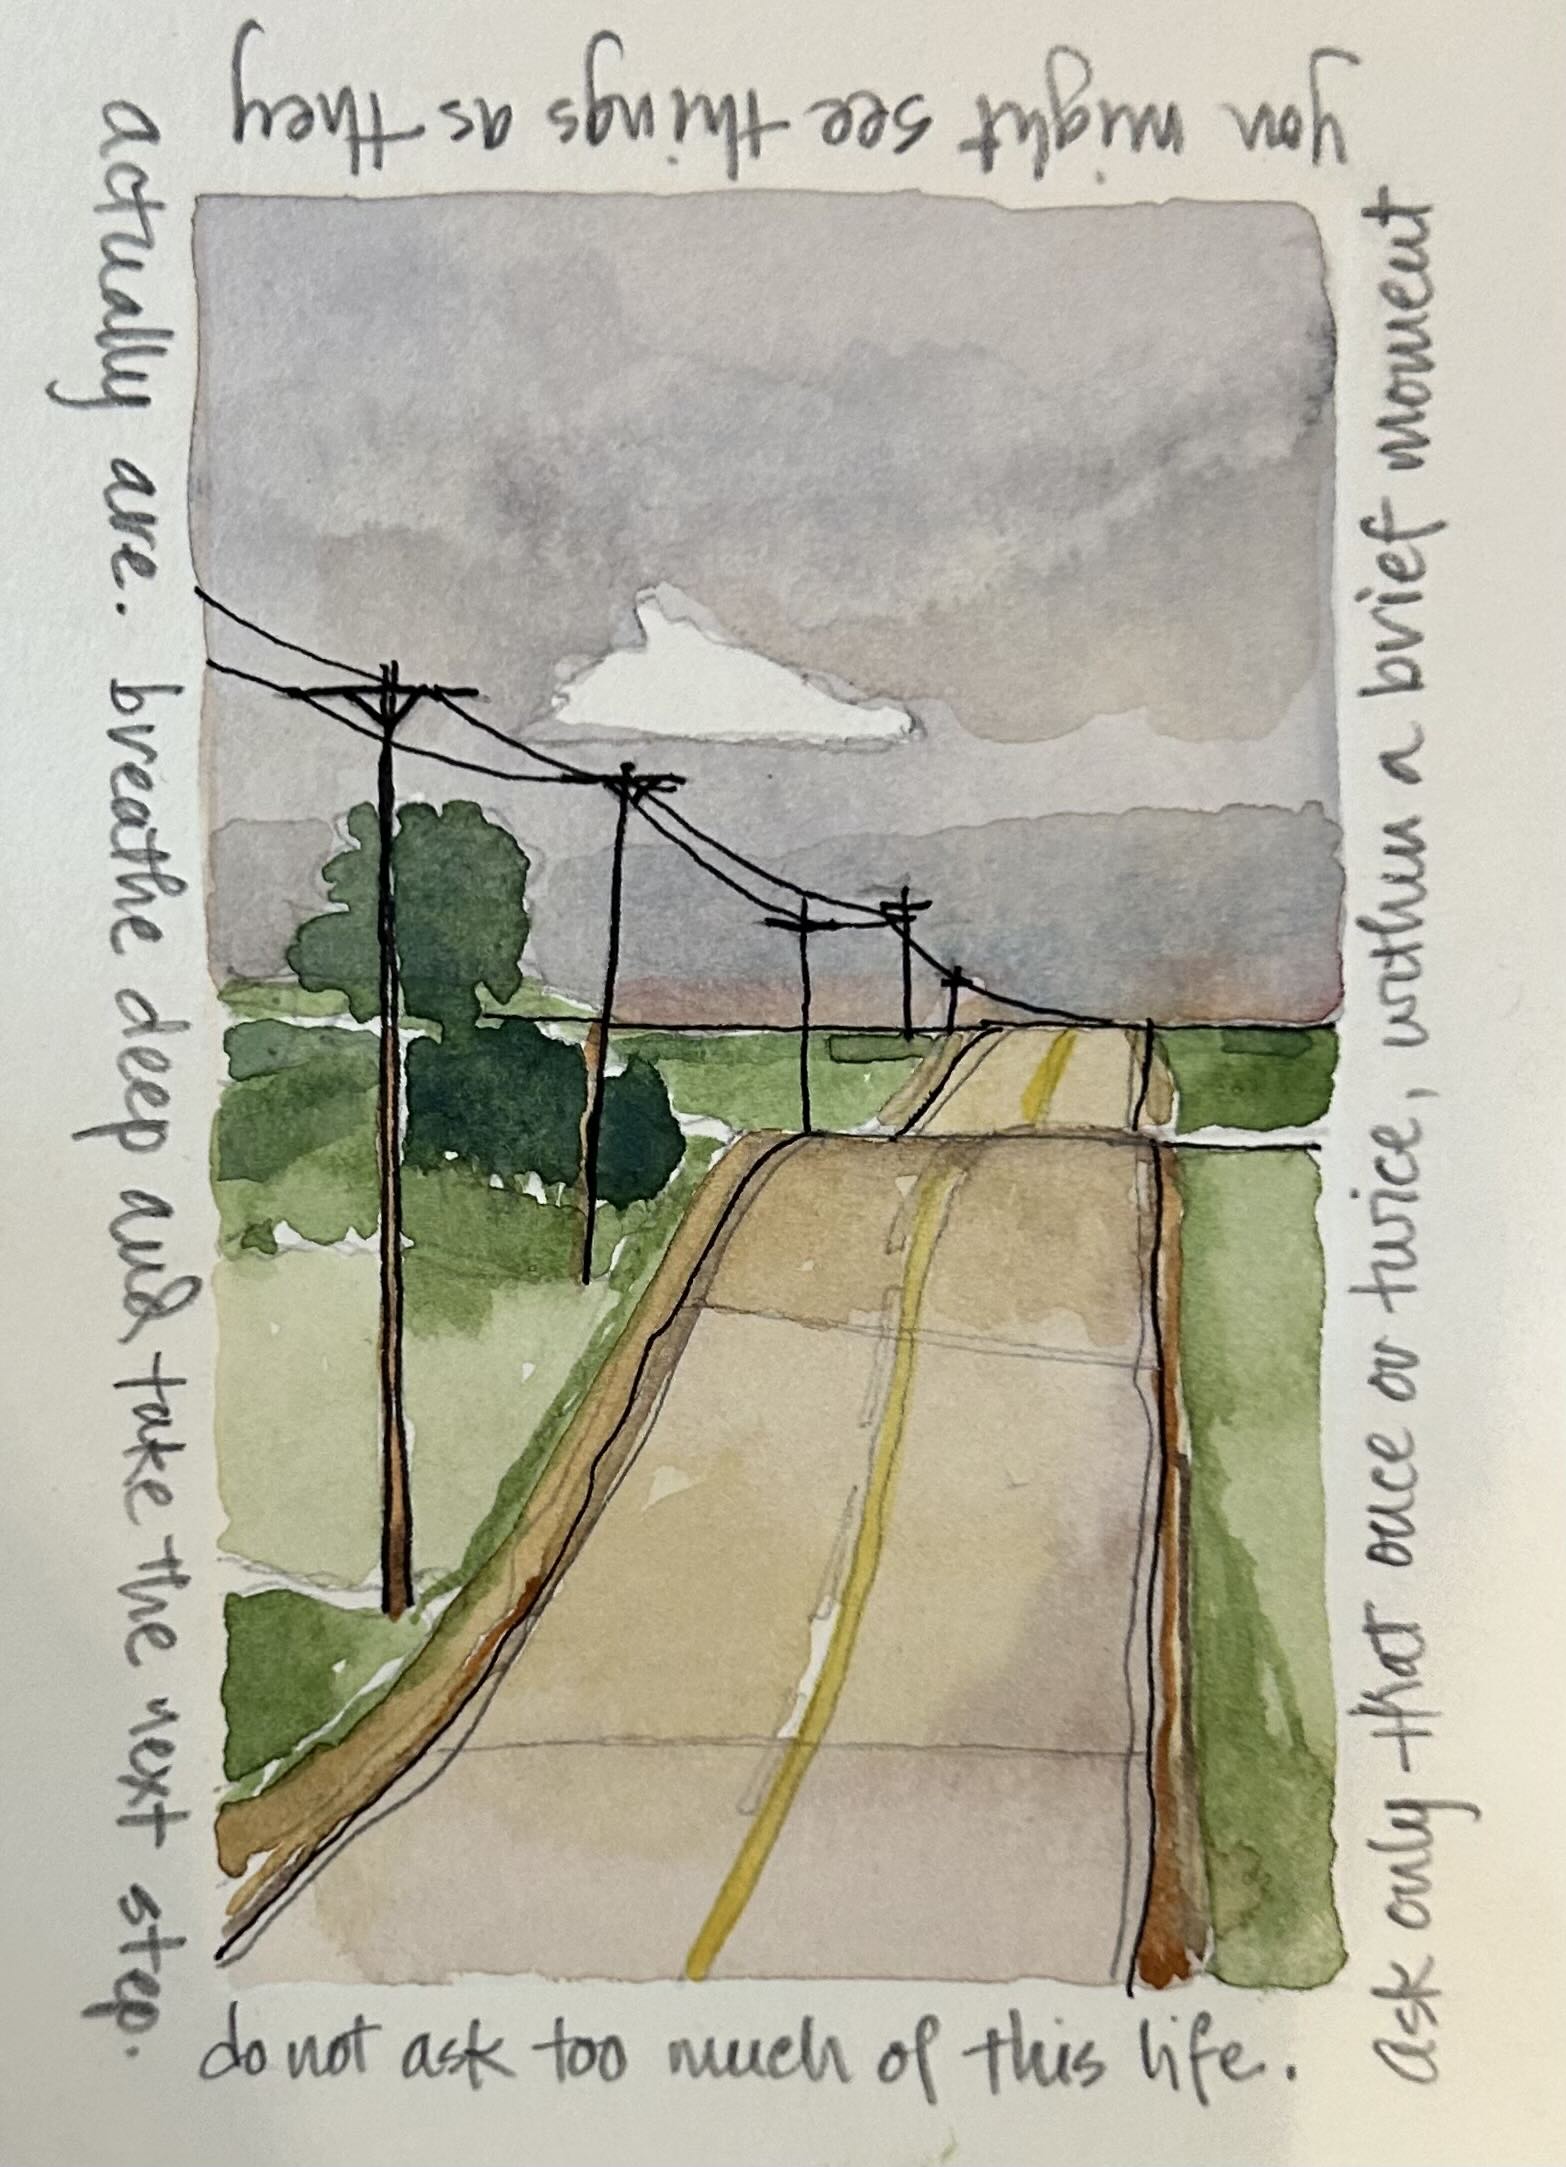 do not ask too much of this life.
ask only that once or twice, within a brief moment
you might see things as they
actually are. breathe deep and take the next step.